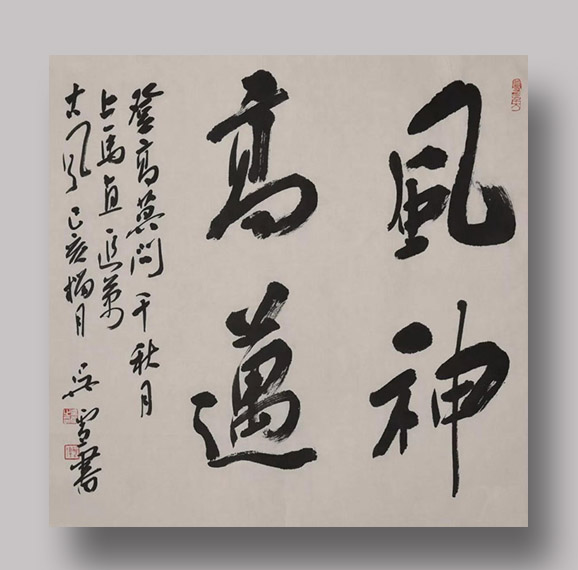 風神
高邁
登高莫問千秋月
上馬直追萬
古風 己亥榴月 書